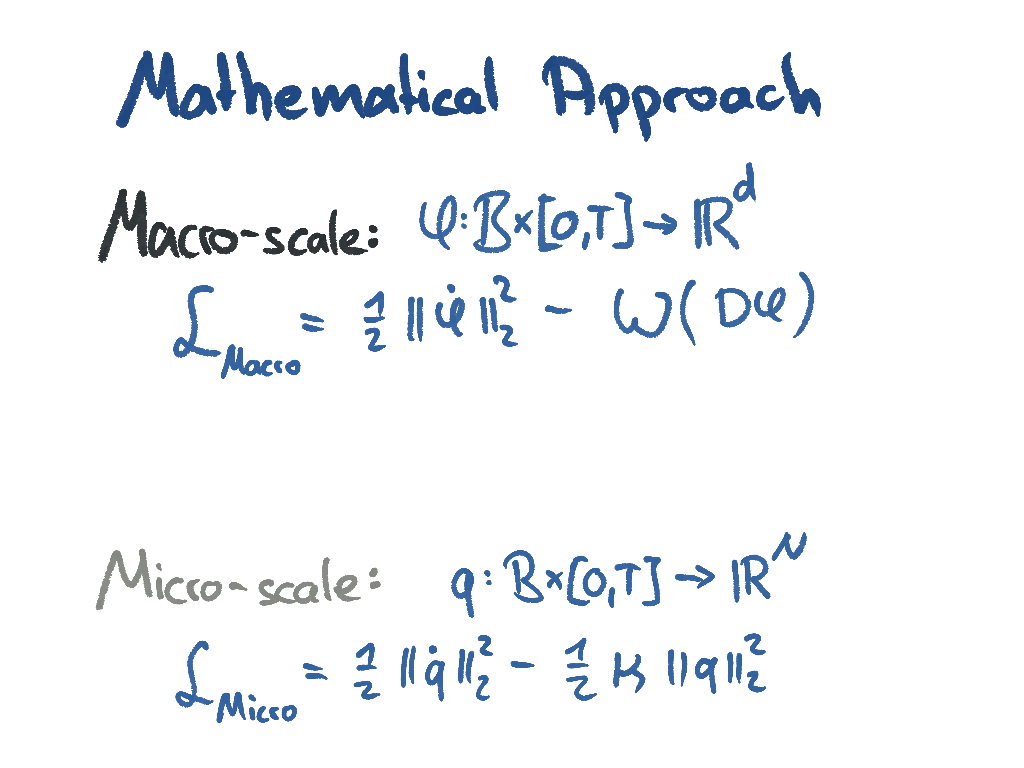 Mathematical Approach
Macro-scale: φ: B×[0,T] → ℝ^d
ℒ_Macro = 1/2 ‖φ̇‖₂² - W(Dφ)
Micro-scale: q: B×[0,T] → ℝ^N
ℒ_Micro = 1/2 ‖q̇‖₂² - 1/2 κ ‖q‖₂²